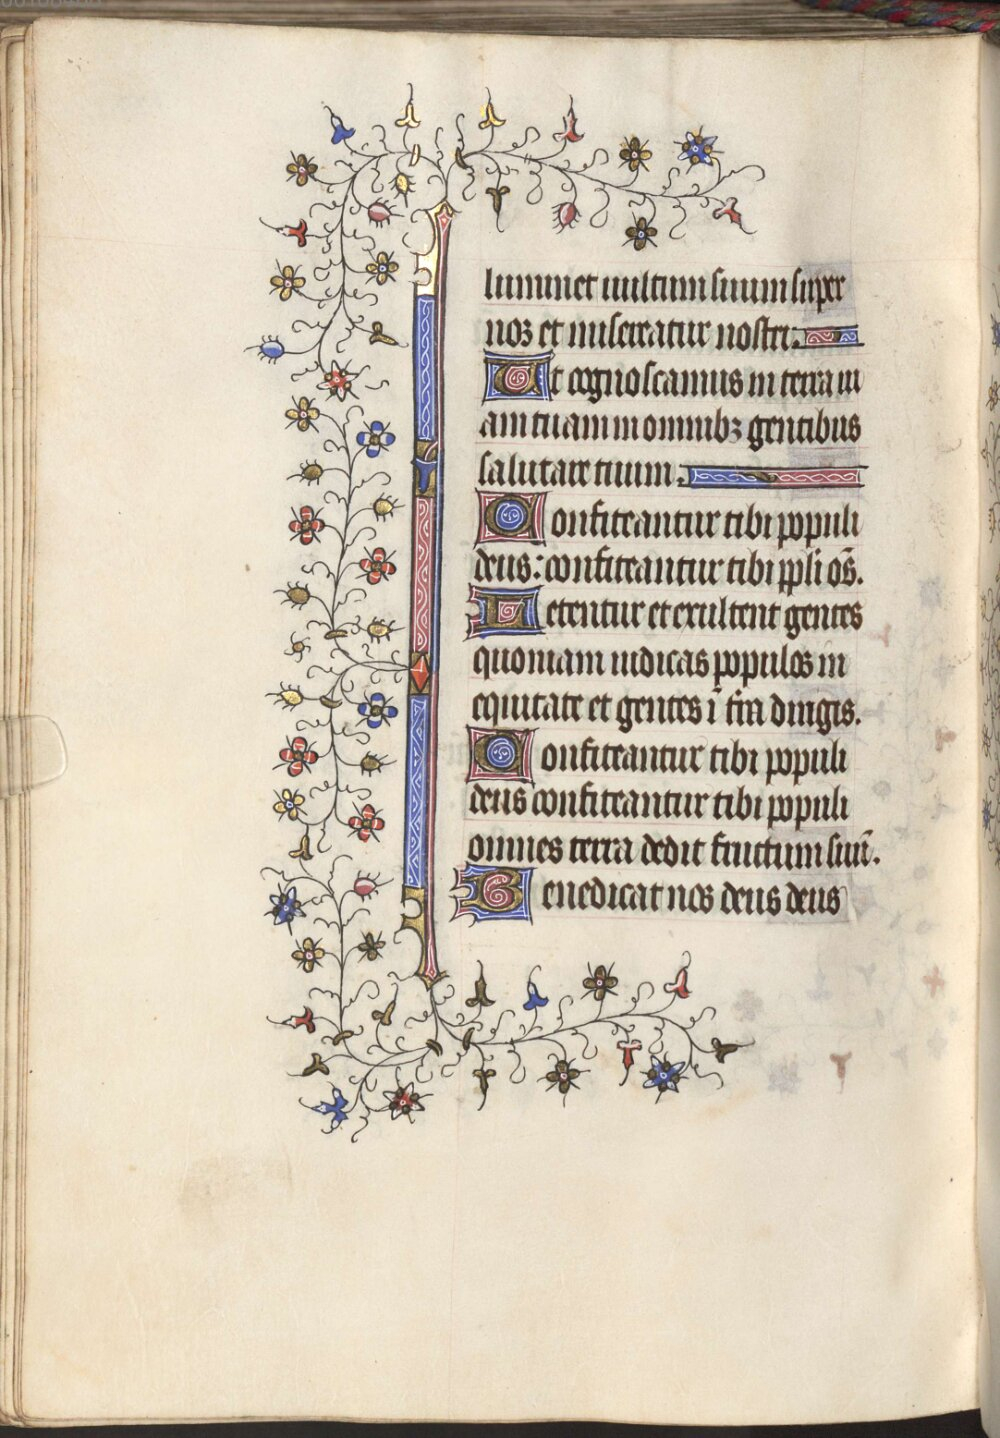 luminet uultum suum super
noꝫ et misereatur nostri.
Ut cognoscamus in terra ui
am tuam in omnibꝫ gentibus
salutare tuum.
Confiteantur tibi populi
deus: confiteantur tibi ppli os̄.
Letentur et exultent gentes
quoniam iudicas populos in
equitate et gentes ī t̄ra dirigis.
Confiteantur tibi populi
deus confiteantur tibi populi
omnes terra dedit fructum suū.
Benedicat nos deus deus